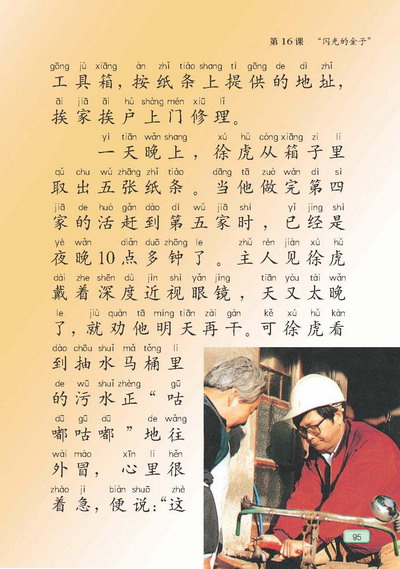 第16课 “闪光的金子”
gōng jù xiāng àn zhǐ tiáo shang tí gōng de dì zhǐ
工具箱，按纸条上提供的地址，
āi jiā āi hù shàng mén xiū lǐ
挨家挨户上门修理。
yì tiān wǎn shang xú hǔ cóng xiāng zi li
一天晚上，徐虎从箱子里
qǔ chu wǔ zhāng zhǐ tiáo dāng tā zuò wán dì sì
取出五张纸条。当他做完第四
jiā de huó gǎn dào dì wǔ jiā shí yǐ jīng shì
家的活赶到第五家时，已经是
yè wǎn diǎn duō zhōng le zhǔ rén jiàn xú hǔ
夜晚10点多钟了。主人见徐虎
dài zhe shēn dù jìn shì yǎn jìng tiān yòu tài wǎn
戴着深度近视眼镜，天又太晚
le jiù quàn tā míng tiān zài gàn kě xú hǔ kàn
了，就劝他明天再干。可徐虎看
dào chōu shuǐ mǎ tǒng li
到抽水马桶里
de wū shuǐ zhèng gū
的污水正“咕
dū gū dū de wǎng
嘟咕嘟”地往
wài mào xīn lǐ hěn
外冒，心里很
zháo jí biàn shuō zhè
着急，便说：“这
95